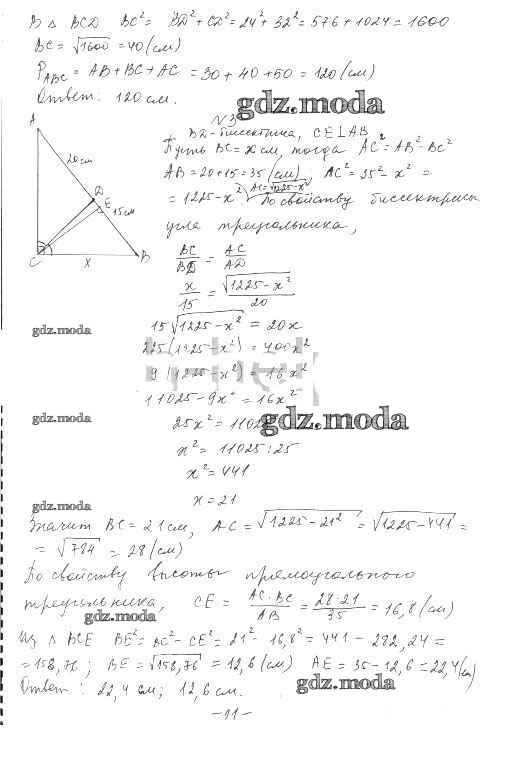 В Δ BCD BC² = BD² + CD² = 24² + 32² = 576 + 1024 = 1600
BC = √1600 = 40 (см)
P_ABC = AB + BC + AC = 30 + 40 + 50 = 120 (см)
Ответ: 120 см.
gdz.moda
N 3
BD - биссектриса, CE⊥AB
Пусть BC = x см, тогда AC² = AB² - BC²
AB = 20 + 15 = 35 (см), AC² = 35² - x² =
= 1225 - x², AC = √1225 - x² По свойству биссектрисы
угла треугольника,
A
20 см
D
E
15 см
C
x
B
BC/BD = AC/AD
x/15 = √1225 - x²/20
gdz.moda
15√1225 - x² = 20x
225(1225 - x²) = 400x²
9(1225 - x²) = 16x²
11025 - 9x² = 16x²
gdz.moda
gdz.moda
25x² = 11025
x² = 11025 : 25
x² = 441
x = 21
gdz.moda
Значит BC = 21 см, AC = √1225 - 21² = √1225 - 441 =
= √784 = 28 (см)
gdz.moda
По свойству высоты прямоугольного
треугольника, CE = AC · BC/AB = 28 · 21/35 = 16,8 (см)
gdz.moda
Из Δ BCE BE² = BC² - CE² = 21² - 16,8² = 441 - 282,24 =
= 158,76; BE = √158,76 = 12,6 (см) AE = 35 - 12,6 = 22,4 (см)
Ответ: 22,4 см; 12,6 см.
gdz.moda
- 11 -